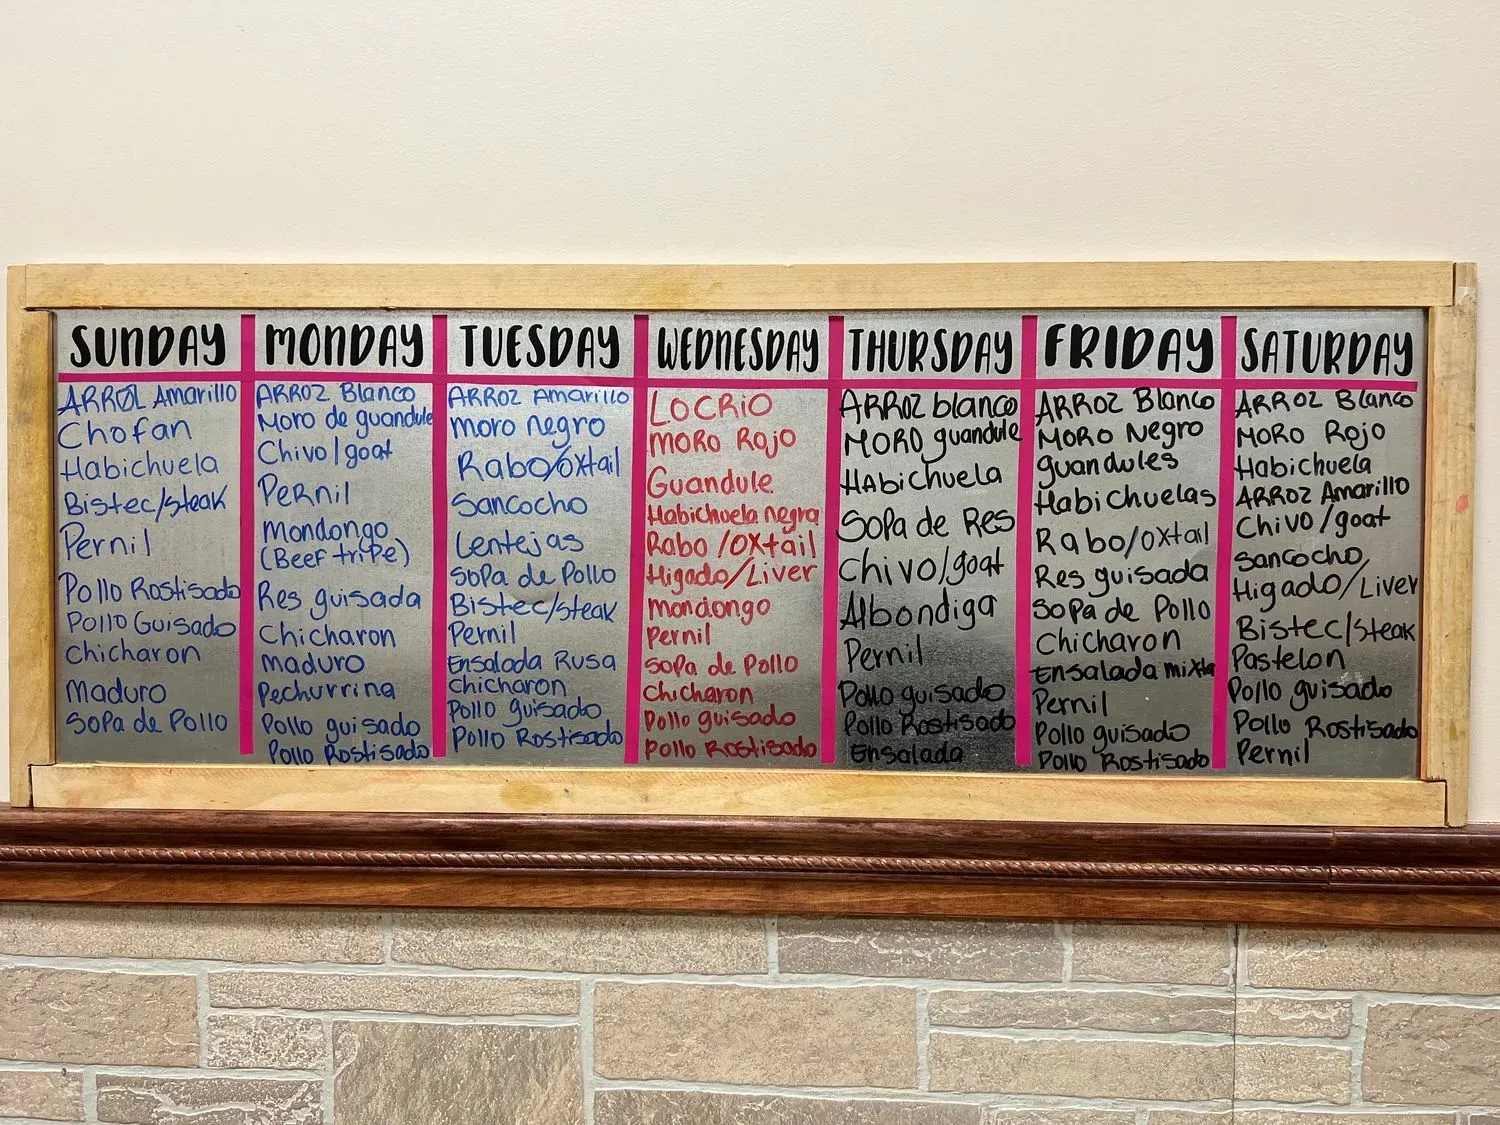 SUNDAY
ARROZ Amarillo
Chofan
Habichuela
Bistec/steak
Pernil
Pollo Rostisado
Pollo Guisado
Chicharon
Maduro
Sopa de Pollo
MONDAY
ARROZ Blanco
Moro de guandule
Chivo/goat
Pernil
Mondongo
(Beef tripe)
Res guisada
Chicharon
Maduro
Pechurrina
Pollo guisado
Pollo Rostisado
TUESDAY
ARROZ Amarillo
Moro negro
Rabo/oxtail
Sancocho
Lentejas
Sopa de Pollo
Bistec/steak
Pernil
Ensalada Rusa
Chicharon
Pollo guisado
Pollo Rostisado
WEDNESDAY
LOCRIO
MORO Rojo
Guandule
Habichuela negra
Rabo/oxtail
Higado/Liver
Mondongo
Pernil
Sopa de Pollo
Chicharon
Pollo guisado
Pollo Rostisado
THURSDAY
ARROZ blanco
MORO guandule
HAbichuela
Sopa de Res
Chivo/goat
Albondiga
Pernil
Pollo guisado
Pollo Rostisado
Ensalada
FRIDAY
ARROZ Blanco
MORO Negro
guandules
Habichuelas
Rabo/oxtail
Res guisada
Sopa de Pollo
Chicharon
Ensalada mixta
Pernil
Pollo guisado
Pollo Rostisado
SATURDAY
ARROZ Blanco
MORO Rojo
Habichuela
ARROZ Amarillo
Chivo/goat
Sancocho
Higado/Liver
Bistec/steak
Pastelon
Pollo guisado
Pollo Rostisado
Pernil